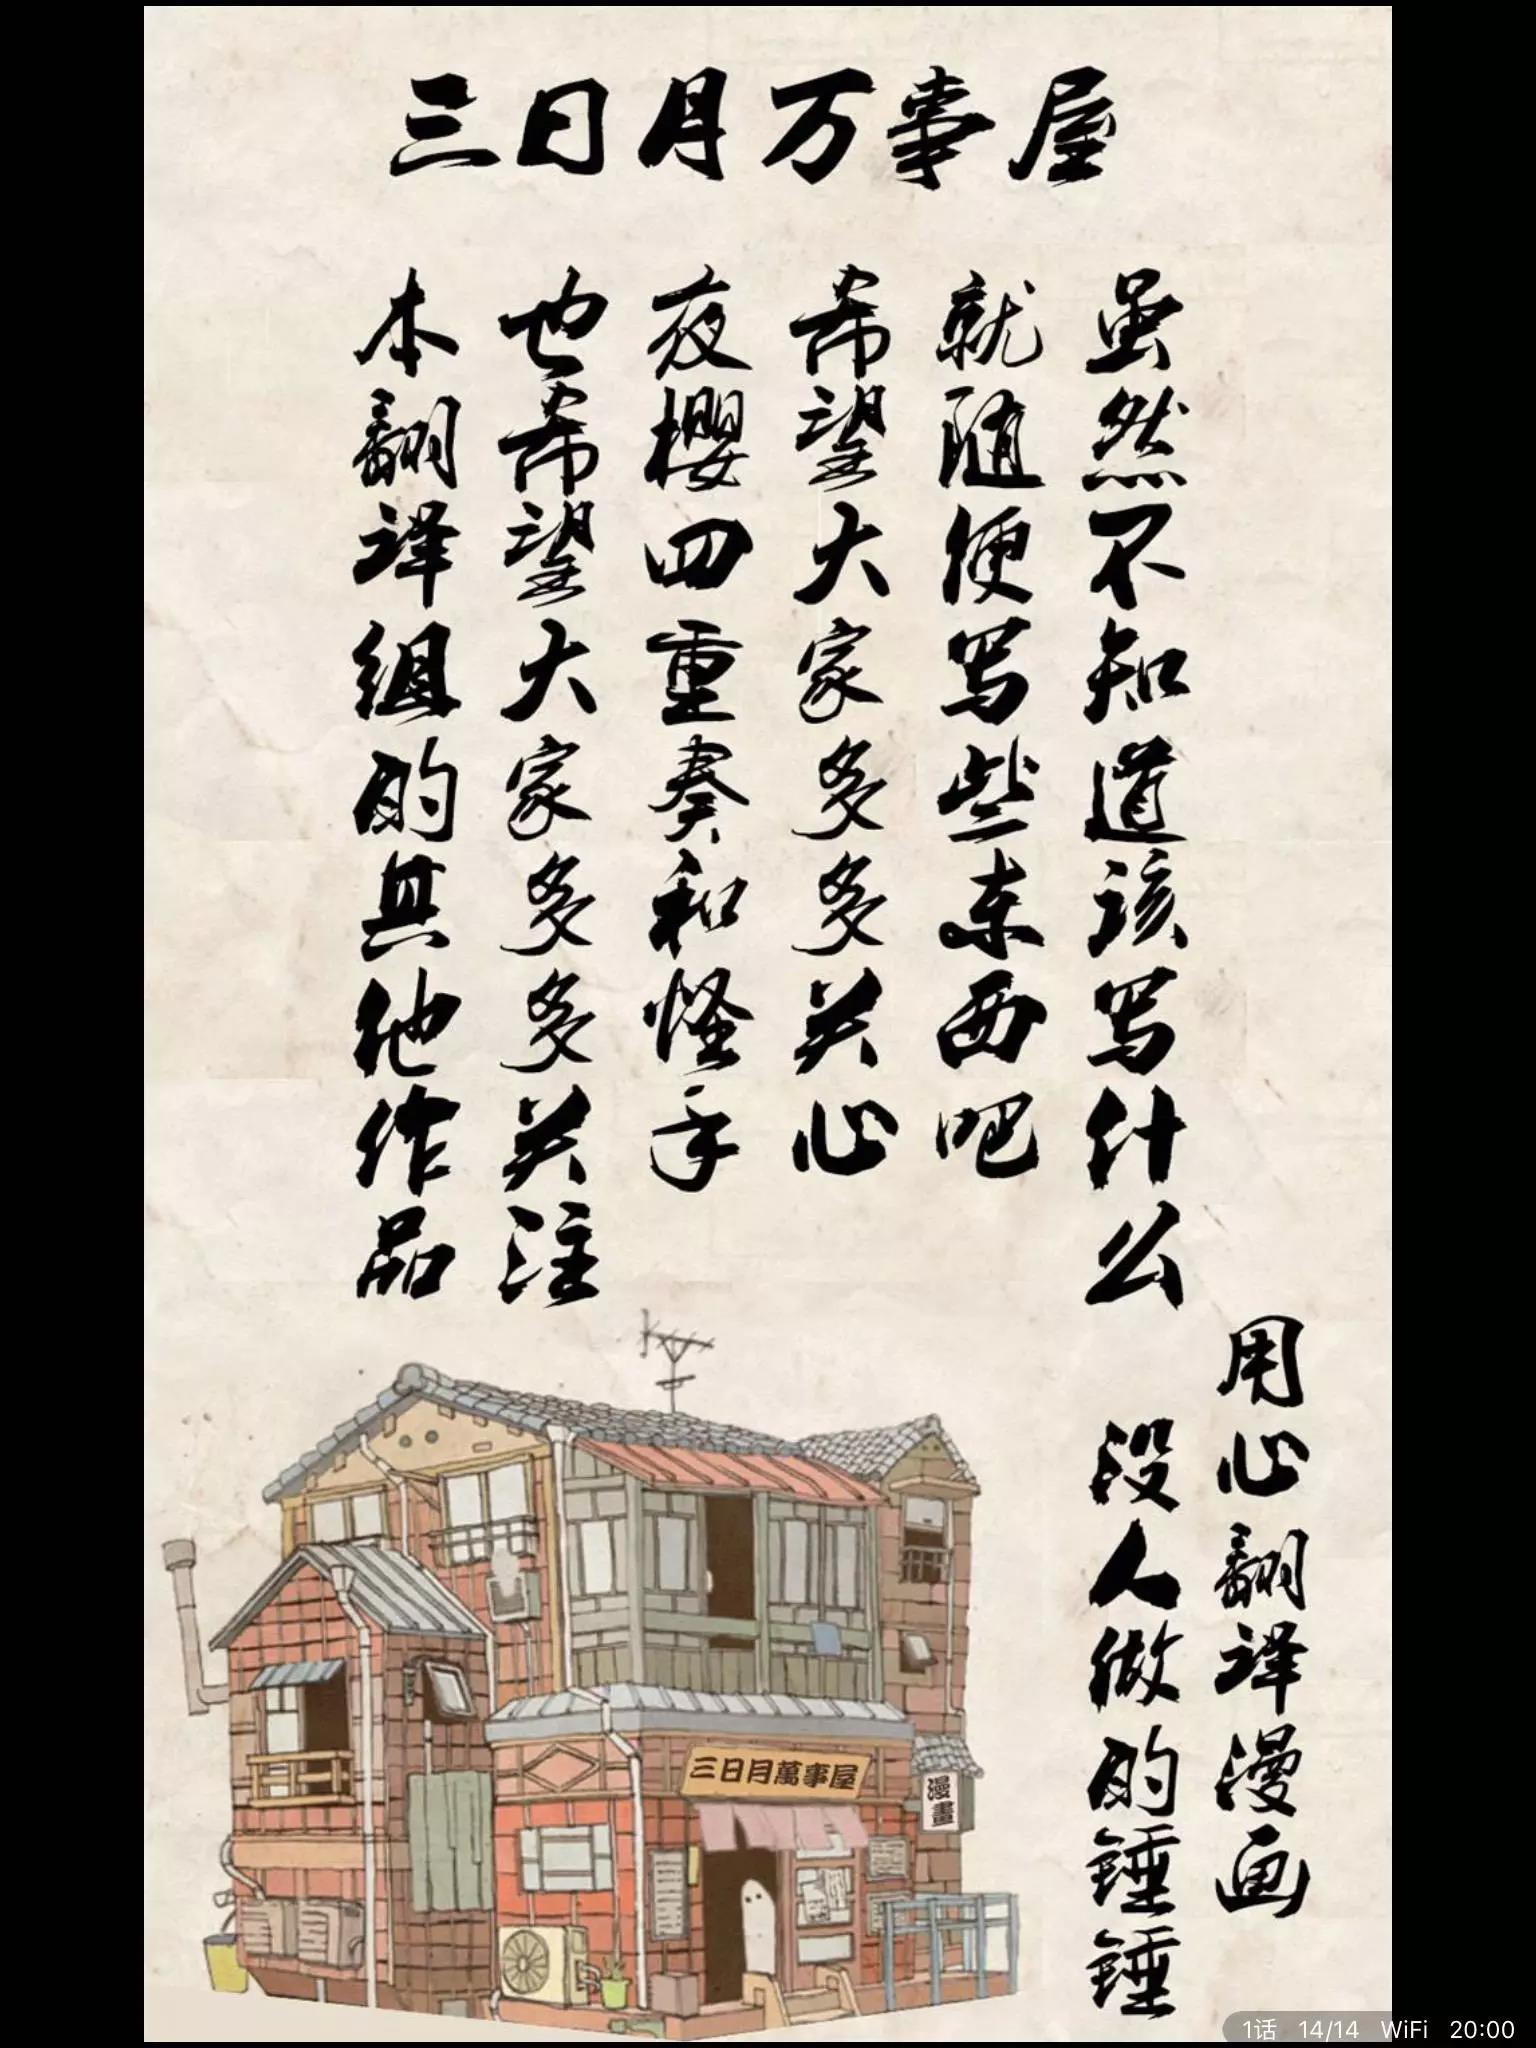 三日月万事屋
虽然不知道该写什么
就随便写些东西吧
希望大家多多关心
夜樱四重奏和怪手
也希望大家多多关注
本翻译组的其他作品
用心翻译漫画
没人做的锤锤
三日月萬事屋
漫畫
1话 14/14 WiFi 20:00